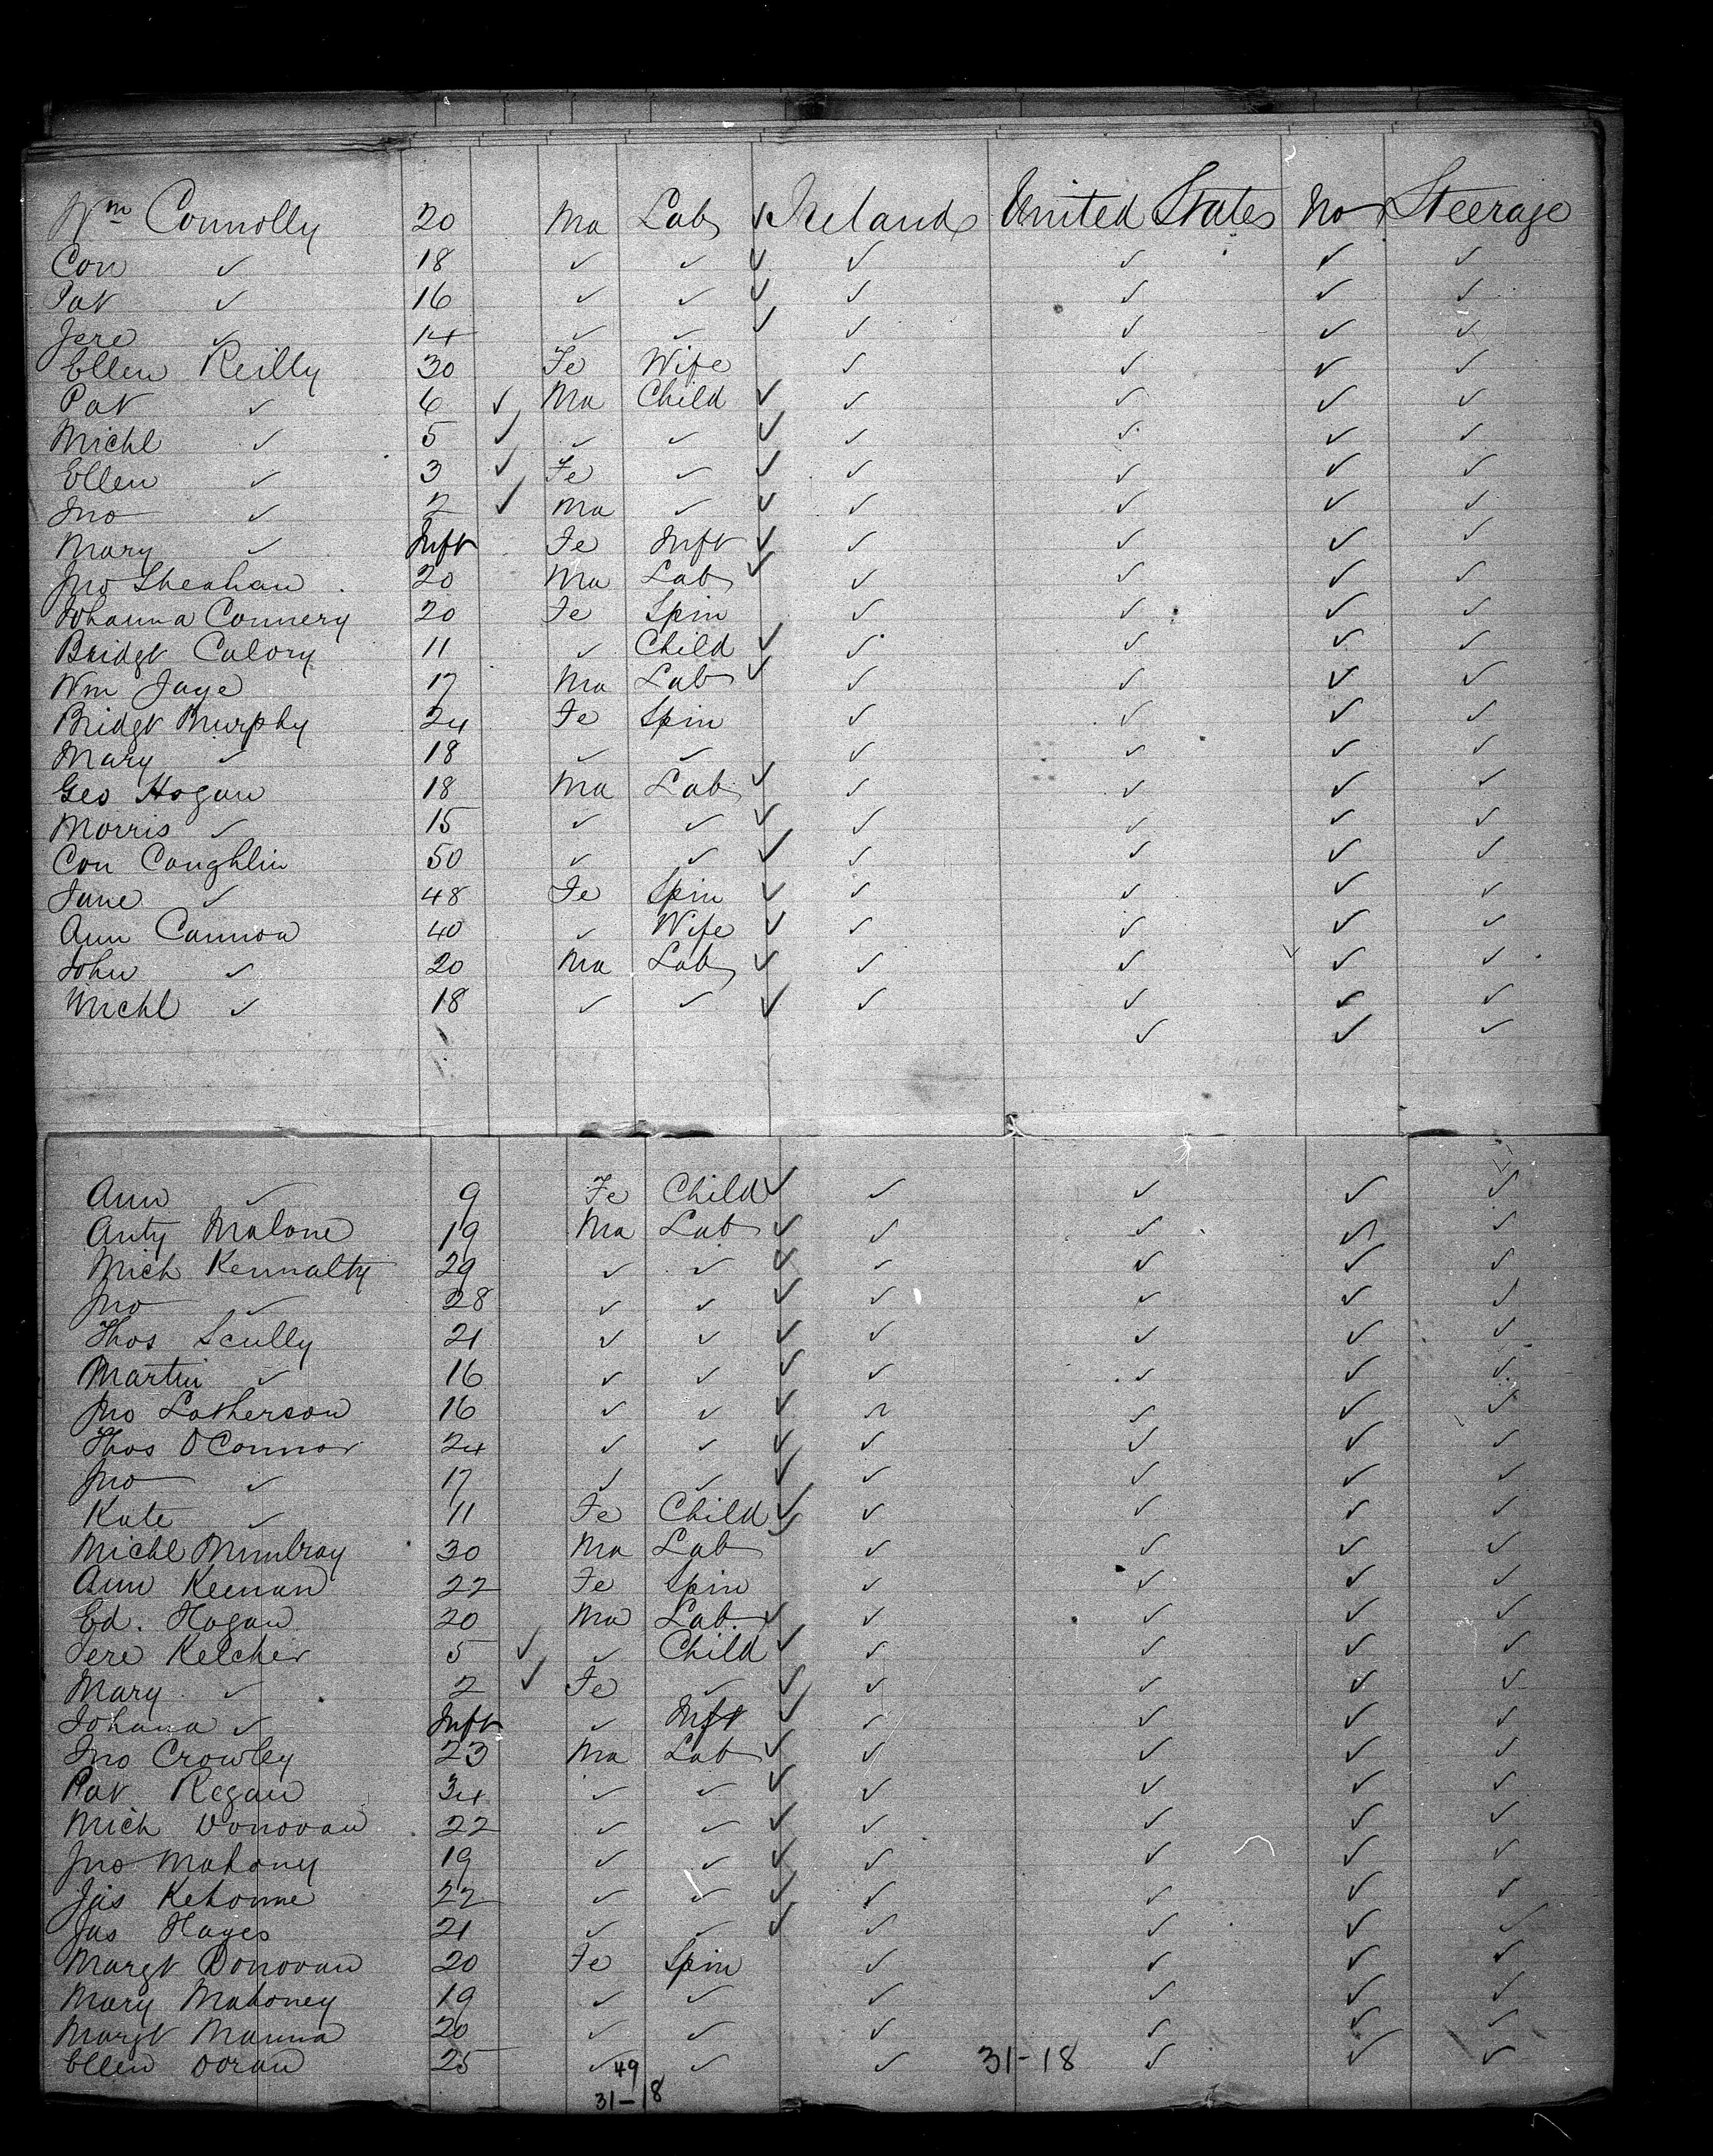 Wm Connolly 20 Ma Lab ✓ Ireland United States No Steerage
Con ✓ 18 ✓ ✓ ✓ ✓ ✓ ✓ ✓
Pat ✓ 16 ✓ ✓ ✓ ✓ ✓ ✓ ✓
Jere ✓ 14 ✓ ✓ ✓ ✓ ✓ ✓ ✓
Ellen Reilly 30 Fe Wife ✓ ✓ ✓ ✓
Pat ✓ 6 ✓ Ma Child ✓ ✓ ✓ ✓ ✓
Michl ✓ 5 ✓ ✓ ✓ ✓ ✓ ✓ ✓ ✓
Ellen ✓ 3 ✓ Fe ✓ ✓ ✓ ✓ ✓ ✓
Jno ✓ 2 ✓ Ma ✓ ✓ ✓ ✓ ✓ ✓
Mary ✓ Inft Fe Inft ✓ ✓ ✓ ✓ ✓
Jno Sheahan 20 Ma Lab ✓ ✓ ✓ ✓ ✓
Johanna Connery 20 Fe Spin ✓ ✓ ✓ ✓
Bridgt Calory 11 ✓ Child ✓ ✓ ✓ ✓ ✓
Wm Jaye 17 Ma Lab ✓ ✓ ✓ ✓ ✓
Bridgt Murphy 24 Fe Spin ✓ ✓ ✓ ✓
Mary ✓ 18 ✓ ✓ ✓ ✓ ✓ ✓
Geo Hogan 18 Ma Lab ✓ ✓ ✓ ✓ ✓
Morris ✓ 15 ✓ ✓ ✓ ✓ ✓ ✓ ✓
Con Coughlin 50 ✓ ✓ ✓ ✓ ✓ ✓ ✓
Jane ✓ 48 Fe Spin ✓ ✓ ✓ ✓ ✓
Ann Cannon 40 ✓ Wife ✓ ✓ ✓ ✓ ✓
John ✓ 20 Ma Lab ✓ ✓ ✓ ✓ ✓
Michl ✓ 18 ✓ ✓ ✓ ✓ ✓ ✓ ✓
✓ ✓ ✓
Ann ✓ 9 Fe Child ✓ ✓ ✓ ✓ ✓
Anty Malone 19 Ma Lab ✓ ✓ ✓ ✓ ✓
Mich Kennalty 29 ✓ ✓ ✓ ✓ ✓ ✓ ✓
Jno ✓ 28 ✓ ✓ ✓ ✓ ✓ ✓ ✓
Thos Scully 21 ✓ ✓ ✓ ✓ ✓ ✓ ✓
Martin ✓ 16 ✓ ✓ ✓ ✓ ✓ ✓ ✓
Jno Latherson 16 ✓ ✓ ✓ ✓ ✓ ✓ ✓
Thos OConnor 24 ✓ ✓ ✓ ✓ ✓ ✓ ✓
Jno ✓ 17 ✓ ✓ ✓ ✓ ✓ ✓ ✓
Kate ✓ 11 Fe Child ✓ ✓ ✓ ✓ ✓
Michl 30 Ma Lab ✓ ✓ ✓ ✓ ✓
Ann Keenan 22 Fe Spin ✓ ✓ ✓ ✓
Ed. Hogan 20 Ma Lab ✓ ✓ ✓ ✓ ✓
Jere Kelcher 5 ✓ ✓ Child ✓ ✓ ✓ ✓ ✓
Mary ✓ 2 ✓ Fe ✓ ✓ ✓ ✓ ✓ ✓
Johana ✓ Inft ✓ Inft ✓ ✓ ✓ ✓ ✓
Jno Crowley 23 Ma Lab ✓ ✓ ✓ ✓ ✓
Pat Regan 34 ✓ ✓ ✓ ✓ ✓ ✓ ✓
Mich Donovan 22 ✓ ✓ ✓ ✓ ✓ ✓ ✓
Jno Mahony 19 ✓ ✓ ✓ ✓ ✓ ✓ ✓
Jas Kehonne 22 ✓ ✓ ✓ ✓ ✓ ✓ ✓
Jas Hayes 21 ✓ ✓ ✓ ✓ ✓ ✓ ✓
Margt Donovan 20 Fe Spin ✓ ✓ ✓ ✓
Mary Mahoney 19 ✓ ✓ ✓ ✓ ✓ ✓
Margt Manna 20 ✓ ✓ ✓ ✓ ✓ ✓
Ellen Doran 25 ✓ ✓ ✓ 31-18 ✓ ✓ ✓
49
31-18